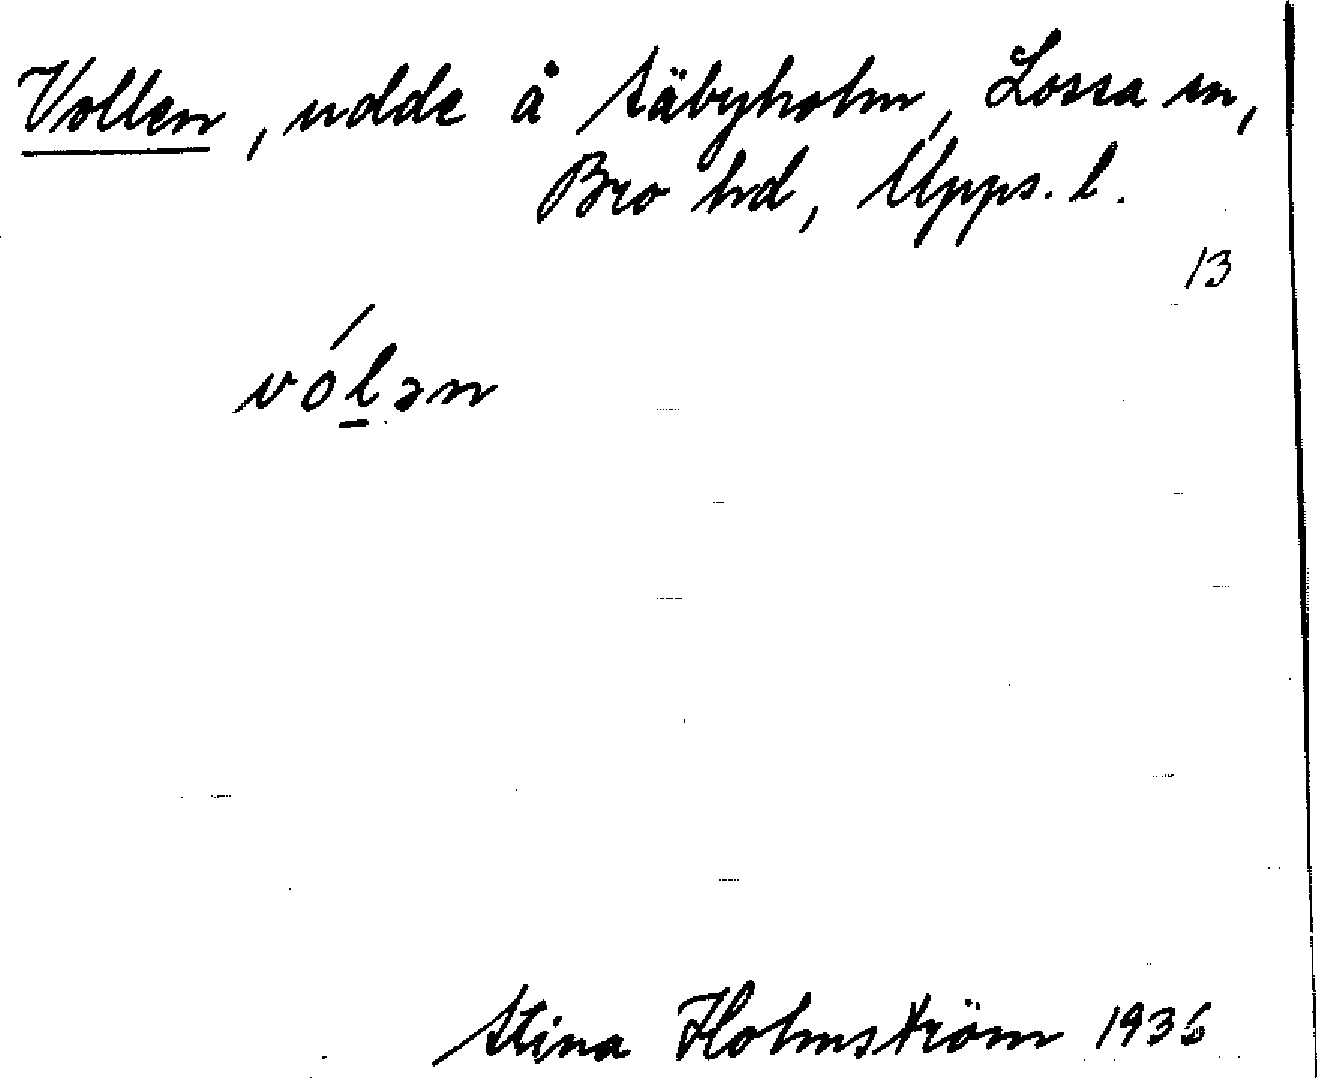 Vollen, udde å Säbyholm, Lossa sn,
Bro hd, Upps. l.
13
vó́l̠ən
Stina Holmström 1936